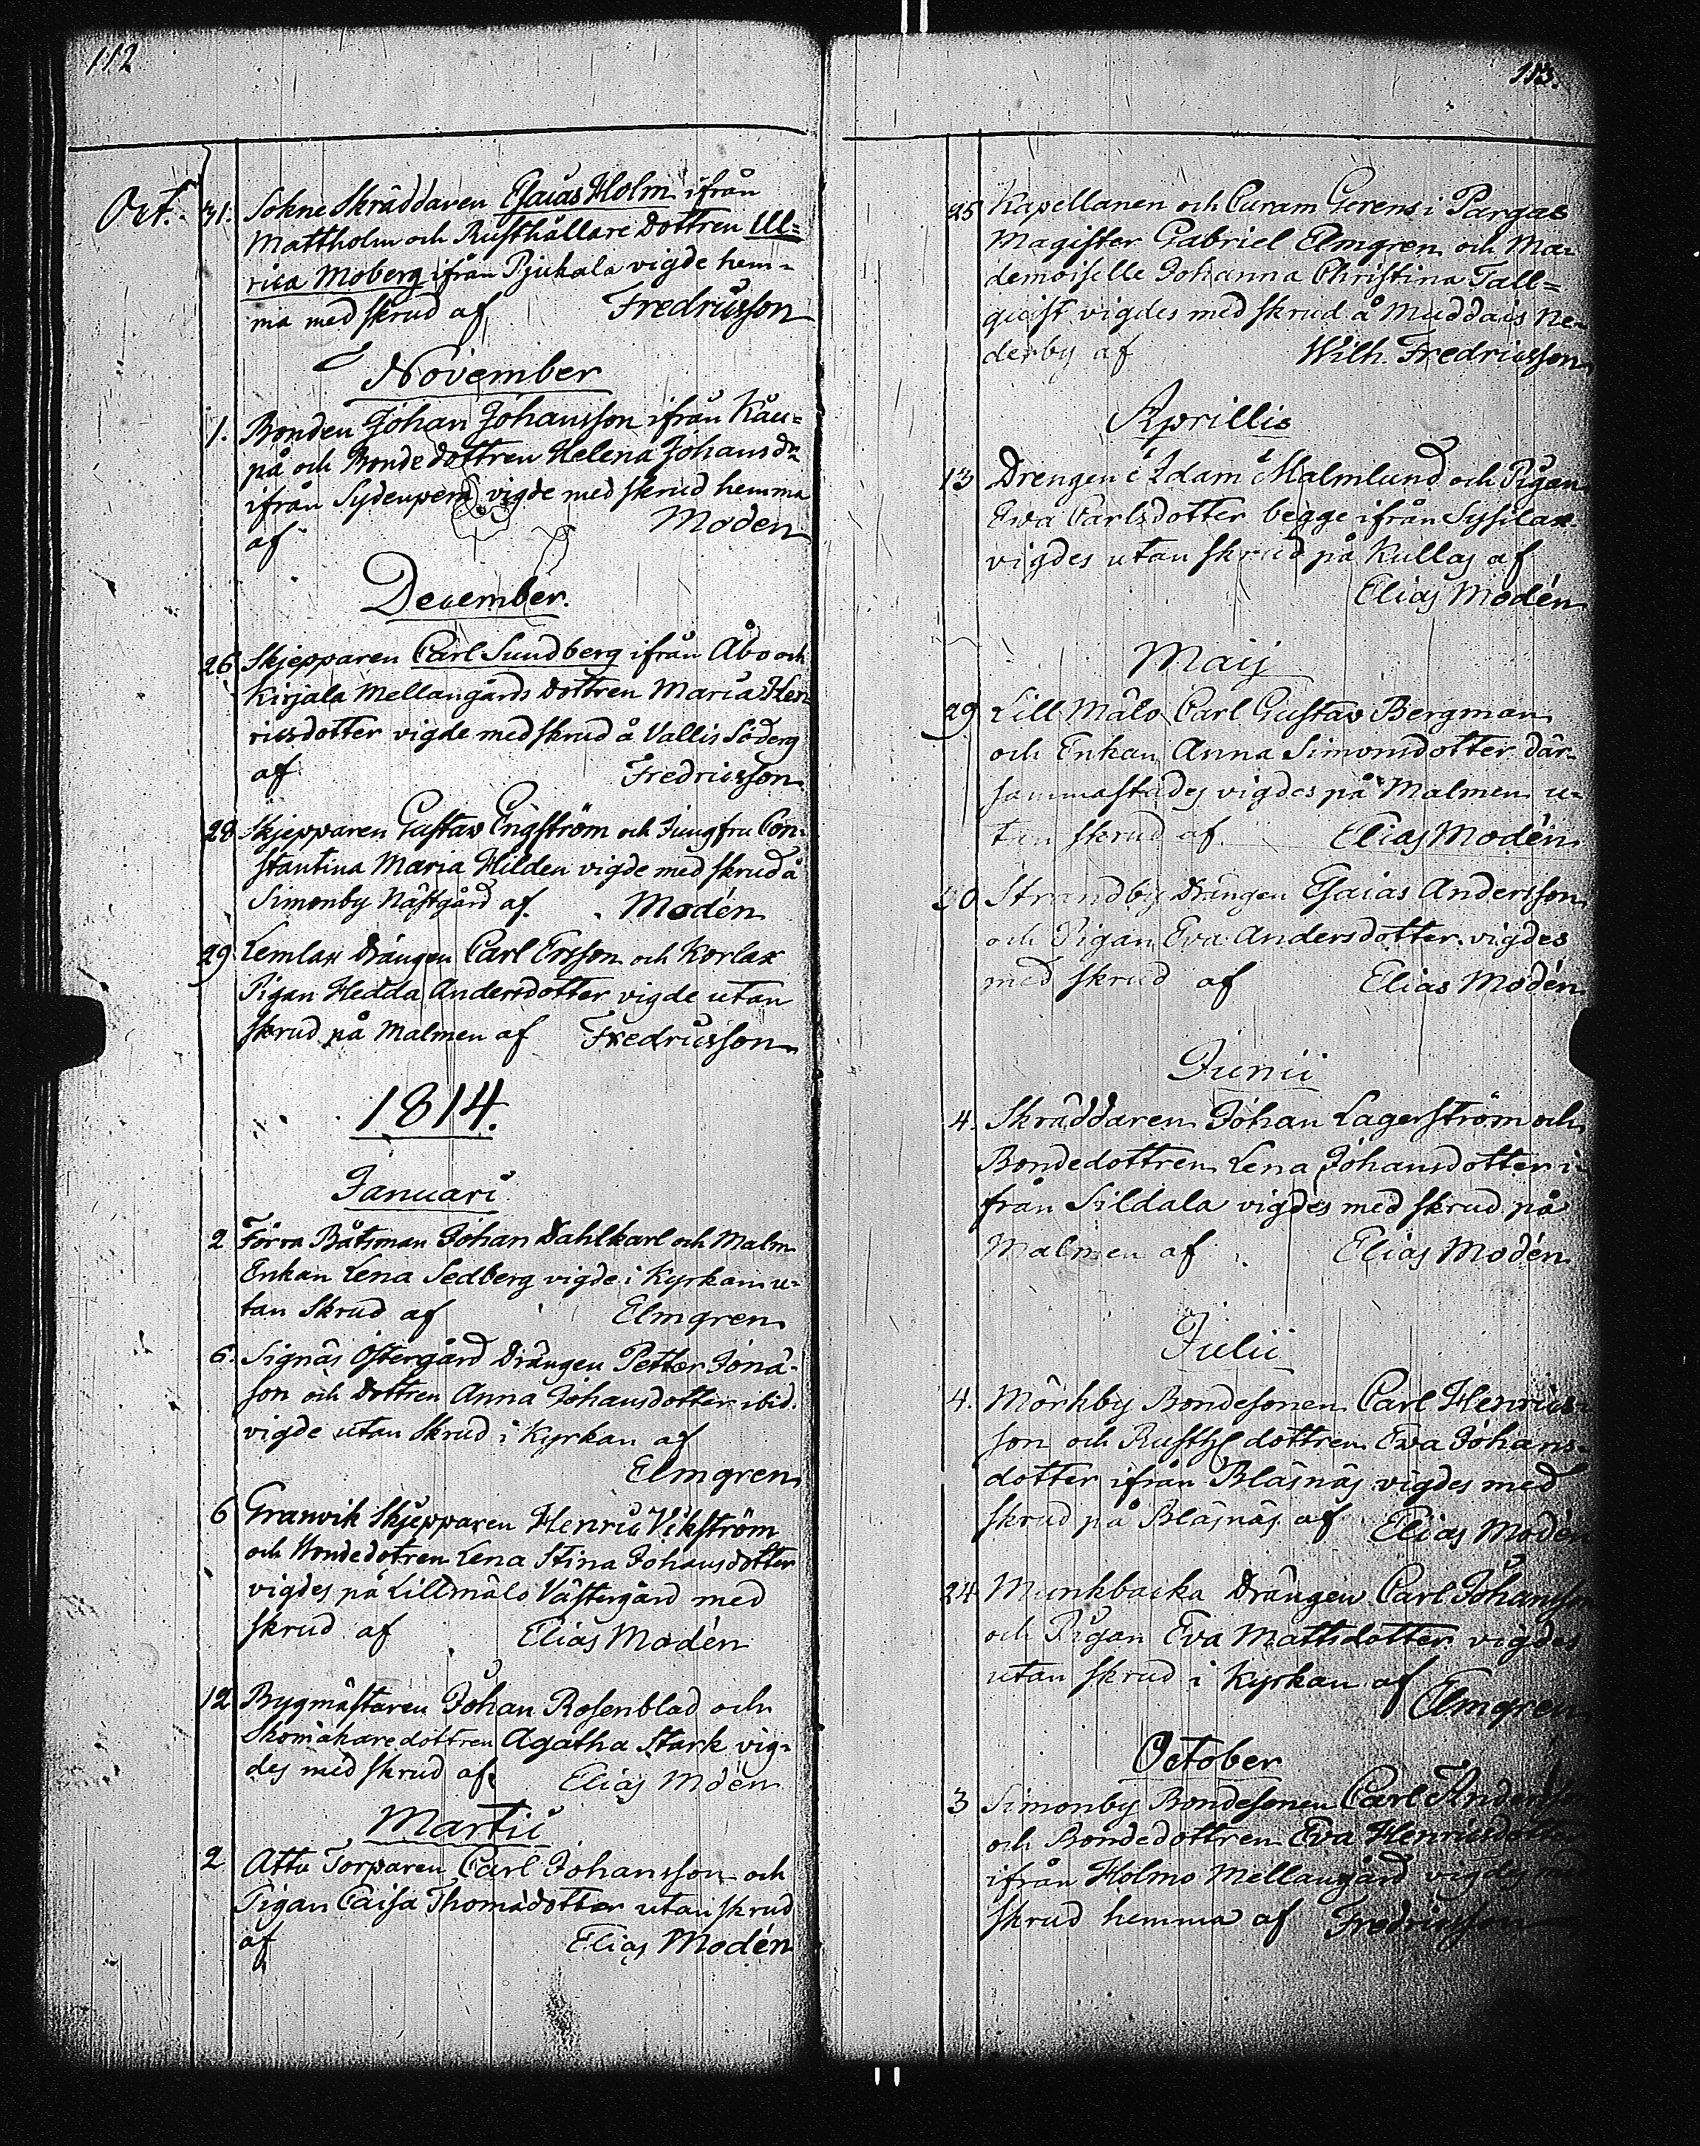 112
Oct. 31. Sokne Skräddaren Esaias Holm ifrån
Mattholm och Rusthållare dottren Ul=
rica Moberg ifrån Pjukala vigde hem-
ma med skrud af Fredricsson
November
1. Bonden Johan Johansson ifrån Kau=
på och Bonde dottren Helena Johansdr
ifrån Sydenperä vigde med skrud hemma
af Moden
December.
26 Skjepparen Carl Sundberg ifrån Åbo och
Kirjala Mellangårds dottren Maria Hen-
ricsdotter vigde med skrud å Vallis Söderg
af Fredricsson
28 Skjepparen Gustav Engström och Jungfru Con-
stantina Maria Hilden vigde med skrud å
Simonby Nästgård af. Modén
29 Lemlax drängen Carl Ersson och Korlax
Pigan Hedda Andersdotter vigde utan
skrud på Malmen af Fredricsson
1814.
Januari
2 Förra Båtsman Johan Dahlkarl och Malm
Enkan Lena Sedberg vigde i Kyrkan u-
tan skrud af Elmgren
6. Signäs Östergård drängen Petter Jona-
son och dottren Anna Johansdotter ibid.
vigde utan skrud i Kyrkan af
Elmgren
6 Granvik Skjepparen Henric Vikström
och Bondedotren Lena Stina Johansdotter
vigdes på Lillmälo Västergård med
skrud af Elias Modén
12 Bygmästaren Johan Rosenblad och
Skomakare dottren Agatha Stark vig-
des med skrud af Elias Moén
Martii
2 Attu Torparen Carl Johansson och
Pigan Caisa Thomasdotter utan skrud
af Elias Modén
113.
25 Kapellanen och Curam Gerens i Pargas
Magister Gabriel Elmgren och Ma-
demoiselle Johanna Christina Tall=
quist vigdes med skrud å Muddais Ne-
derby af Wilh. Fredricsson
Aprillis
13 Drengen Adam Malmlund och Pigan
Eva Carlsdotter begge ifrån Sysilax
vigdes utan skrud på Kullas af
Elias Modén
Maij
29 Lill Mälo Carl Gustav Bergman
och Enkan Anna Simonsdotter där-
sammastades vigdes på Malmen u-
tan skrud af. Elias Modén
30 Strandby drängen Esaias Andersson
och Pigan Eva Andersdotter vigdes
med skrud af Elias Modén
Junii
4. Skräddaren Johan Lagerström och
Bondedottren Lena Johansdotter i-
från Sildala vigdes med skrud på
Malmen af Elias Modén
Julii
4. Mörkby Bondesonen Carl Henrics-
son och Rusth dottren Eva Johans-
dotter ifrån Bläsnäs vigdes med
skrud på Bläsnäs af Elias Modén
24 Munkbacka drängen Carl Johansson
och Pigan Eva Mattsdotter vigdes
utan skrud i Kyrkan af Elmgren
October
3 Simonby Bondesonen Carl Andersson
och Bondedottren Eva Henricsdotter
ifrån Holmo Mellangård vigdes
skrud hemma af Fredricsson